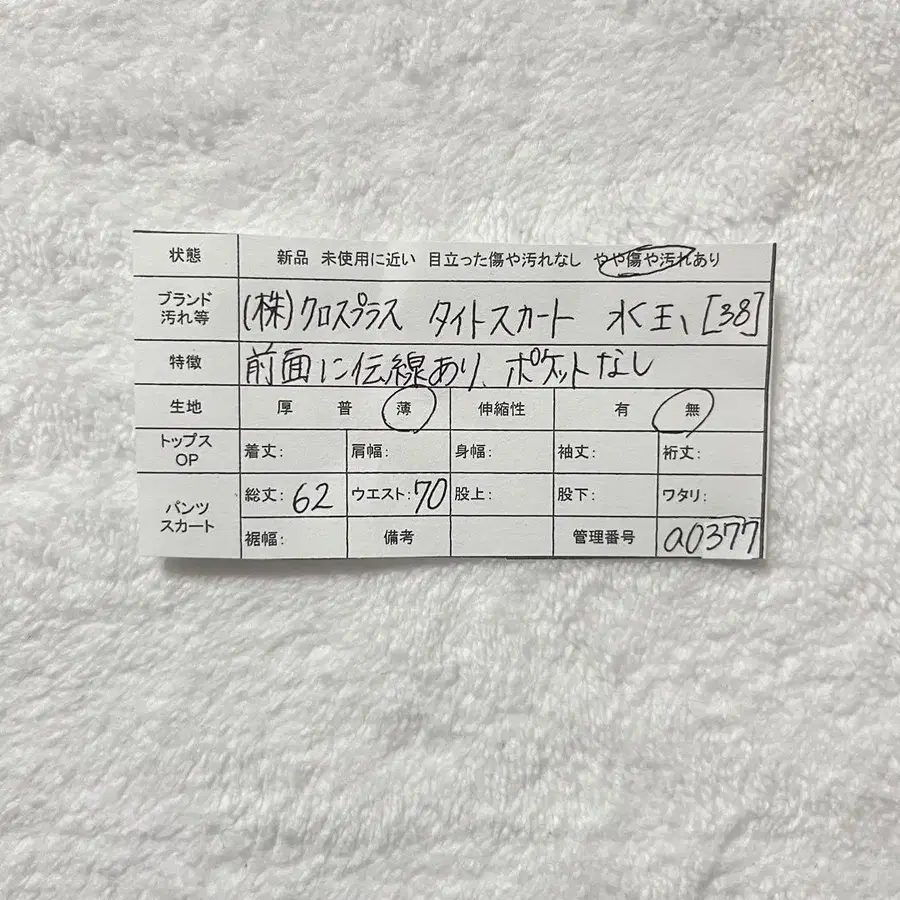 状態 新品 未使用に近い 目立った傷や汚れなし やや傷や汚れあり
ブランド
汚れ等 (株)クロスプラス タイトスカート 水玉、[38]
特徴 前面に伝線あり、ポケットなし
生地 厚 普 薄 伸縮性 有 無
トップス
OP 着丈: 肩幅: 身幅: 袖丈: 裄丈:
パンツ
スカート 総丈:62 ウエスト:70 股上: 股下: ワタリ:
裾幅: 備考 管理番号 a0377